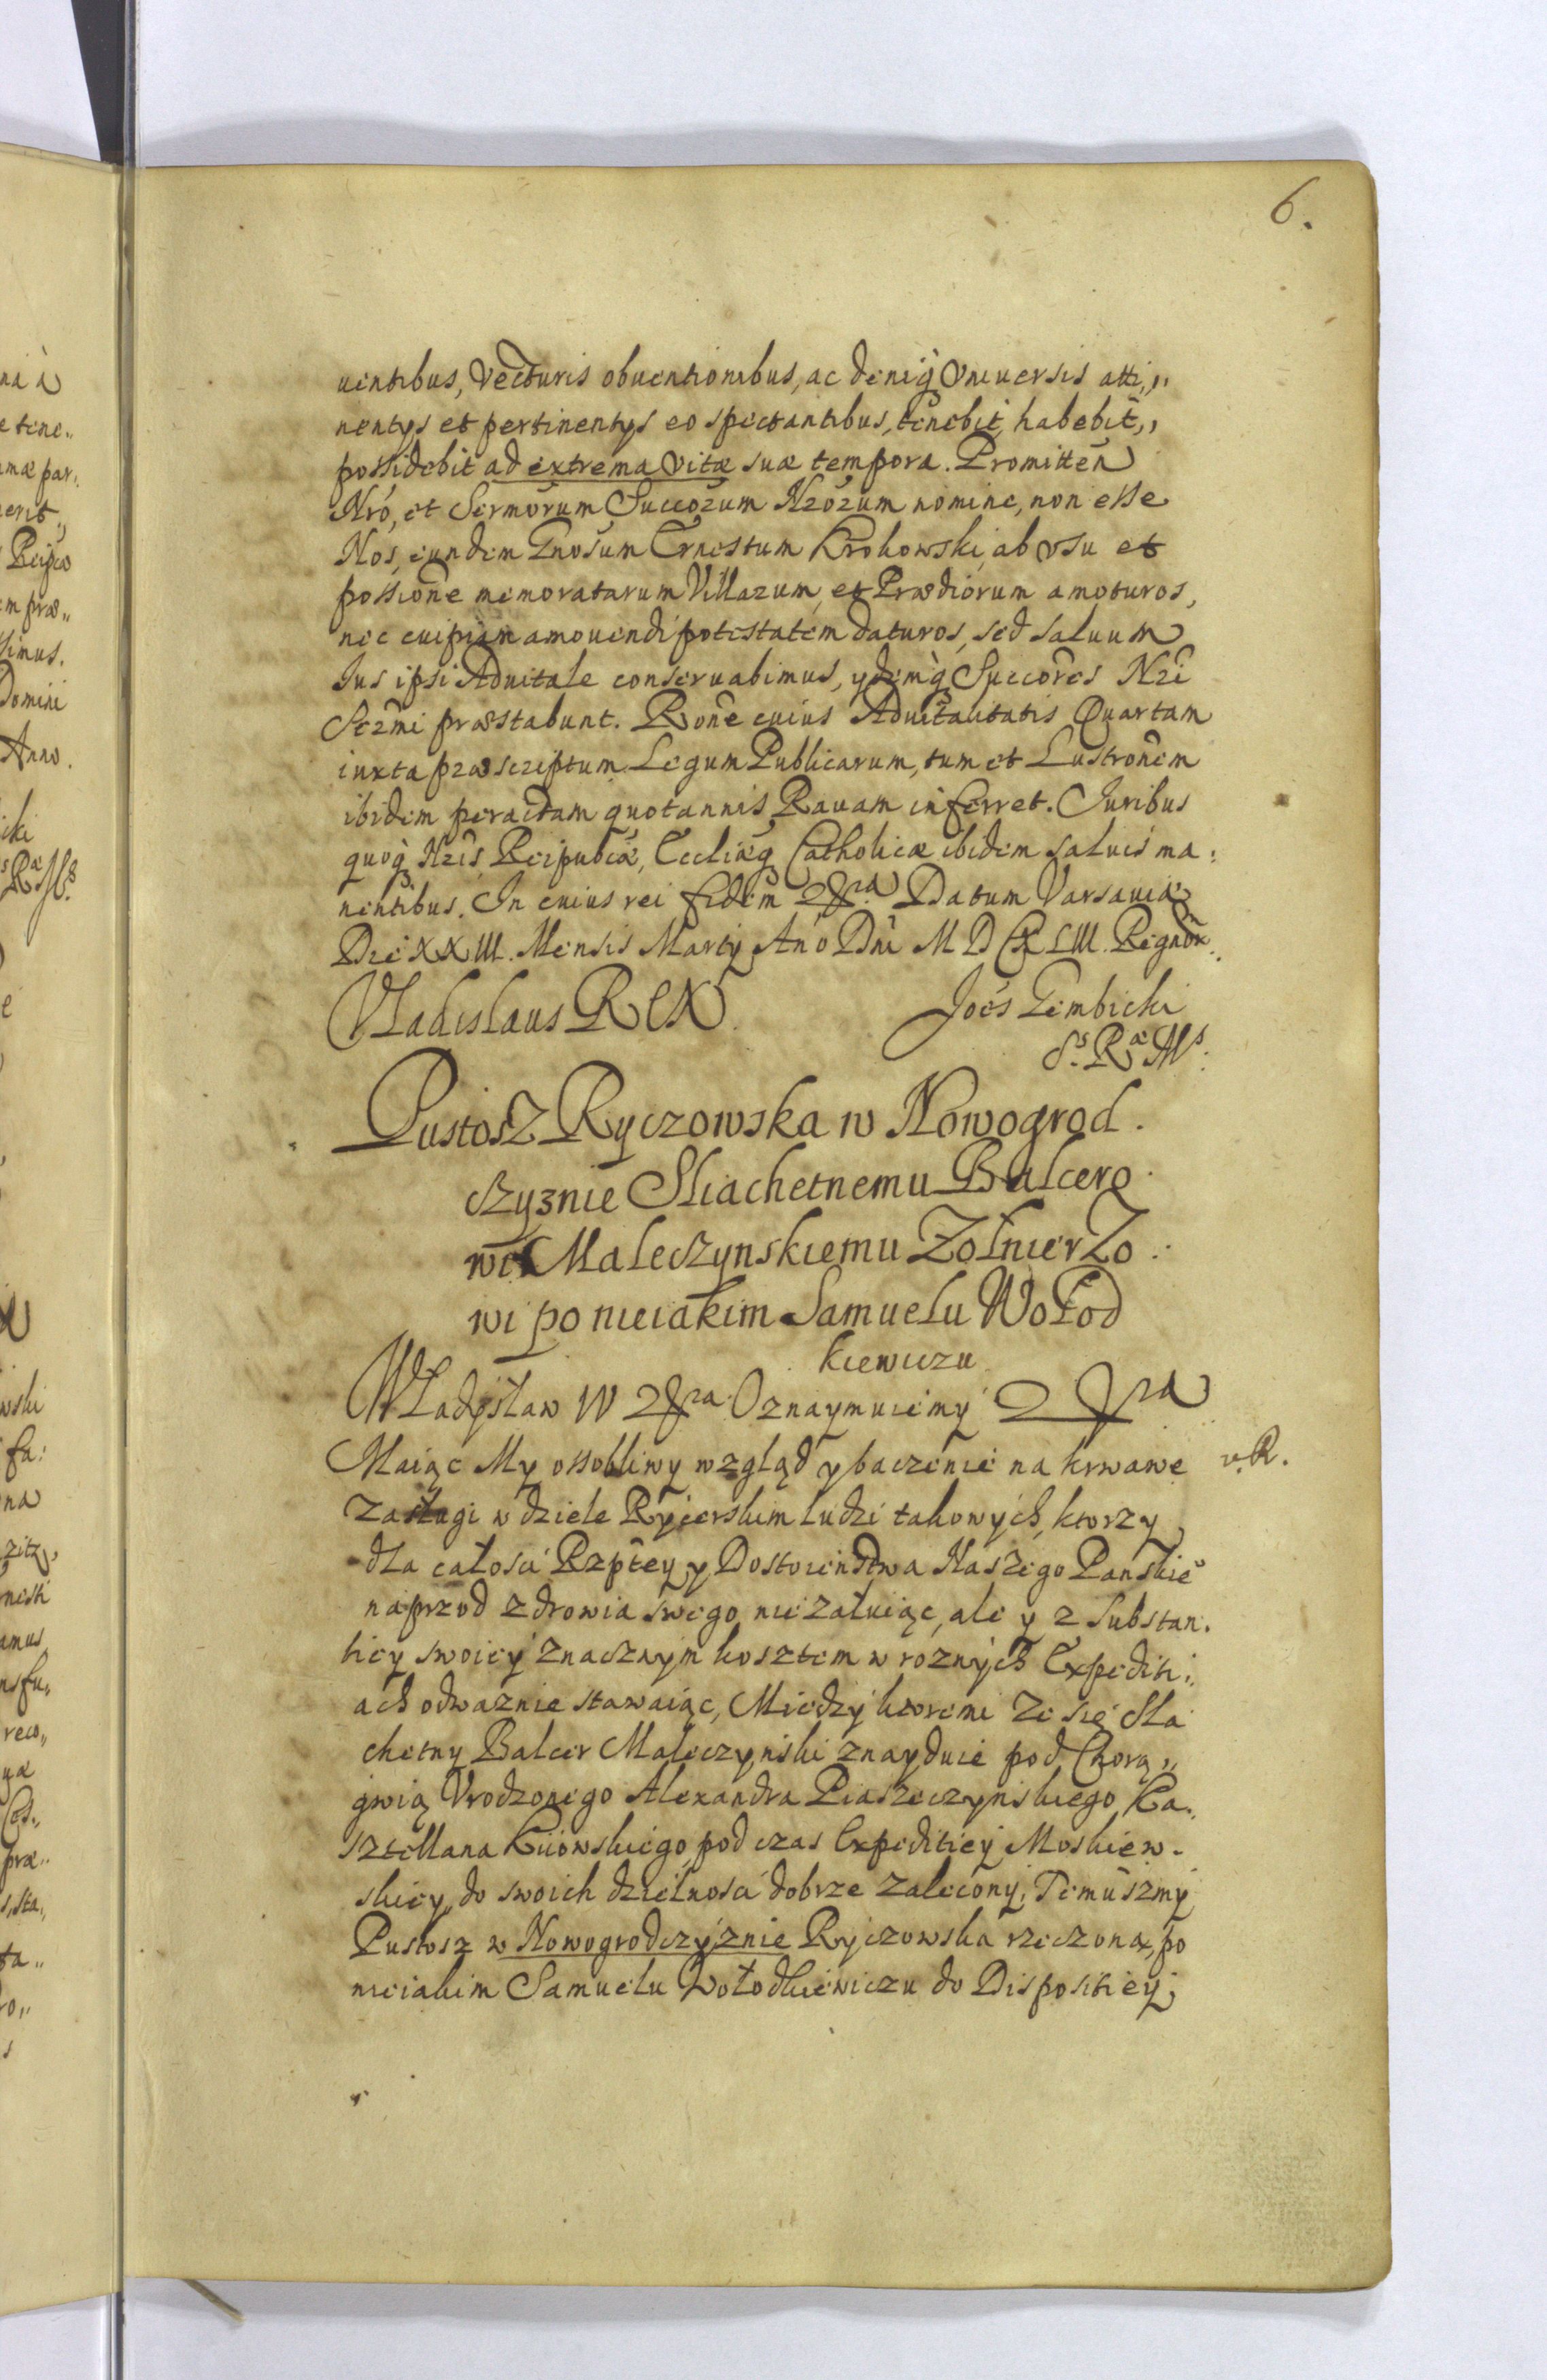 6.
uentibus, Vecturis obuentionibus, ac deniq̀ Vniuersis atti,,
nentys et pertinentys eo spectantibus, tenebit, habebit,,
possidebit ad extrema Vitæ suæ tempora. Promitteñ
Nró, et Sermorum Succorum Nrorum nomine, non esse
Nos, eundem Gnosum Ernestum Krokowski, ab Vsu et
possione memoratarum Villarum, et Prædiorum amoturos,
nec cuipiam amouendi potestatem daturos, sed saluum
Ius ipsi Aduitale conseruabimus, ydemq̀ Succores Nri
Sermi præstabunt. Rone cuius Aduitalitatis Quartam
iuxta præscriptum Legum Publicarum, tum et Lustronem
ibidem peractam quotannis Rauam inferret. Iuribus
quoq̀ Nris, Reipubcæ, Eccliæq̀ Catholicæ ibidem saluis ma:
nentibus. In cuius rei fidem &ra Datum Varsauiæ
Die XXIII. Mensis Marty Año Dni M D C XLIII. Regnor.
Vladislaus REX
Joes Gembicki
S.s R.æ M.s
Pustosz Ryczowska w Nowogrod.
czyznie Sliachetnemu Balcero.
wi Maleczynskiemu Zołnierzo.
wi po nieiakim Samuelu Wołod
kiewiczu
Władysław IV &ra Oznaymuiemy &ra
Maiąc My ossobliwy wzgląd y baczenie na krwawe
v.R.
zasługi w dziele Rycerskim ludzi takowych, ktorzy
dla całosci Rzptey y Dostoienstwa Naszego Panskieo
naprzod zdrowia swego nie załuiąc, ale y z Substan.
tiey swoiey znacznym kosztem w roznych Expediti:
ach odwaznie stawaiąc, Miedzy ktoremi ze się Sla
chetny Balcer Maleczynski znayduie pod Chorą,,
gwią Vrodzonego Alexandra Piaseczynskiego Ka.
sztellana Kiiowskiego, pod czas Expeditiey Moskiew.
skiey, do swoich dzielnosci dobrze zalecony, Temuszmy
Pustosz w Nowogrodczyznie Ryczowska rzeczoną, po
nieiakim Samuelu Wołodkiewiczu do Dispositiey